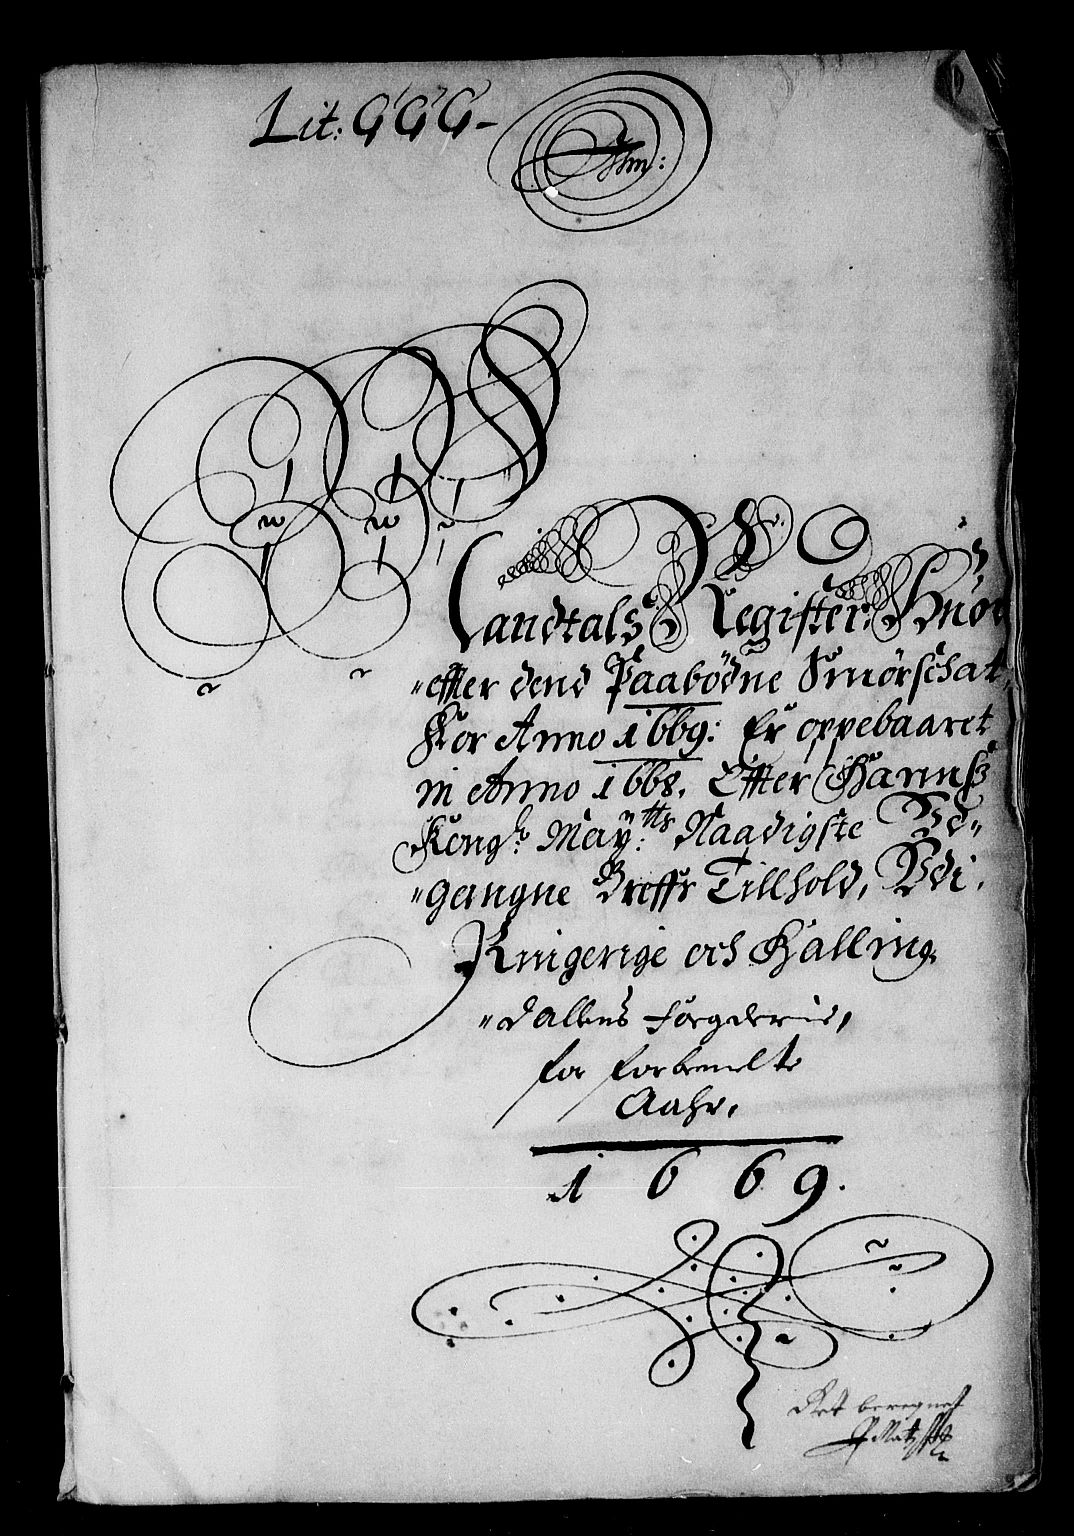 Lit: G G G -
Mandtals Register, Huor
effter dend Paabödne Smörschat
For Anno 1669: Er oppebaaret
in Anno 1668. Effter Hannß
Kongl: May:tts Naadigste Vd-
gangne Breffs Tillhold, Vdi,
Ringerige och Halling
dallens Fogderie,
for forbemelte
Aahr,
1669.
Ret beregnet